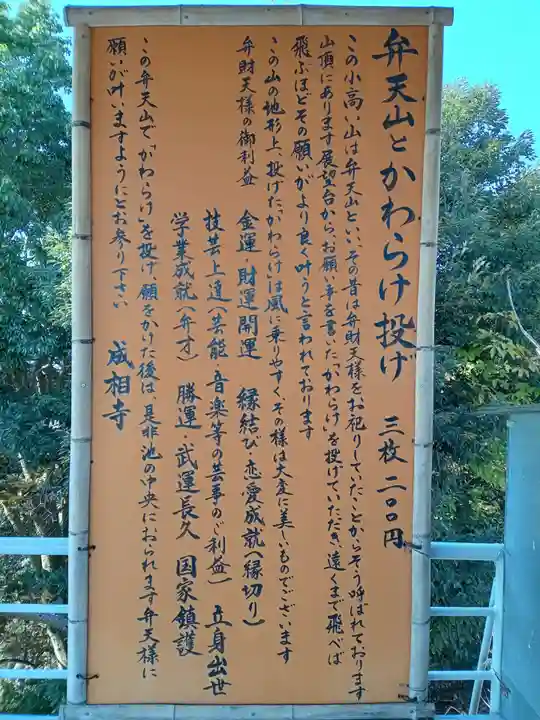 弁天山とかわらけ投げ 三枚二〇〇円
この小高い山は弁天山といい、その昔は弁財天様をお祀りしていたことからそう呼ばれております
山頂にあります展望台から、お願い事を書いた「かわらけ」を投げていただき、遠くまで飛べば
飛ぶほどその願いがより良く叶うと言われております
この山の地形上、投げた「かわらけ」は風に乗りやすく、その様は大変に美しいものでございます
弁財天様の御利益
金運・財運開運 縁結び・恋愛成就(縁切り)
技芸上達(芸能・音楽等の芸事のご利益) 立身出世
学業成就(弁才) 勝運・武運長久 国家鎮護
この弁天山で「かわらけ」を投げ、願をかけた後は、是非池の中央におられます弁天様に
願いが叶いますようにとお参り下さい 成相寺